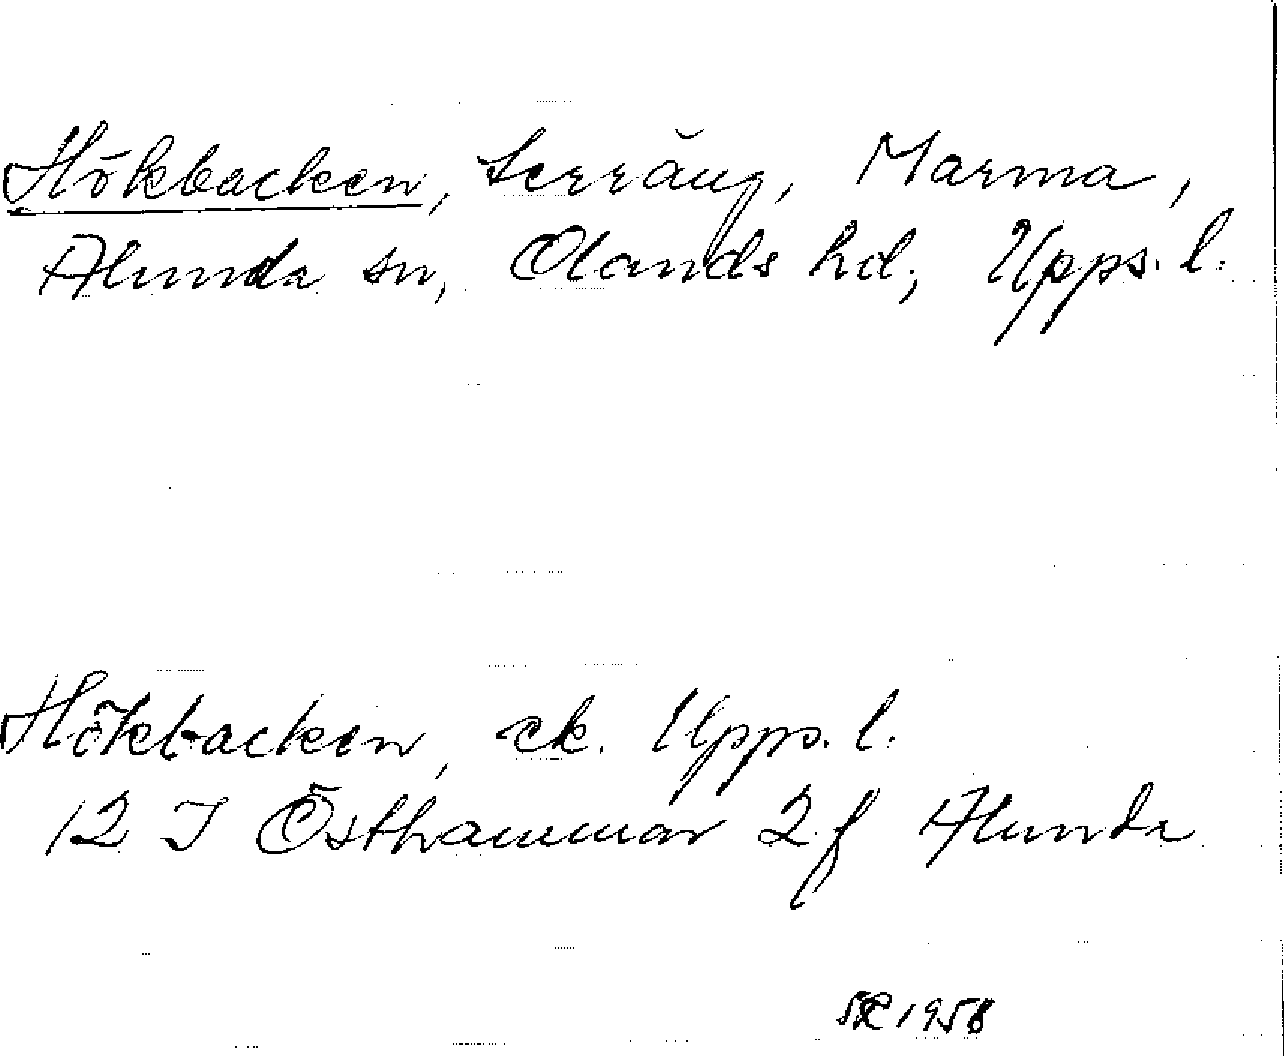 Hökbacken, terräng, Marma,
Alunda sn, Olands hd, Upps. l.
Hökbacken, ek. Upps. l.
12 I Östhammar 2 f Alunda
SR 1958